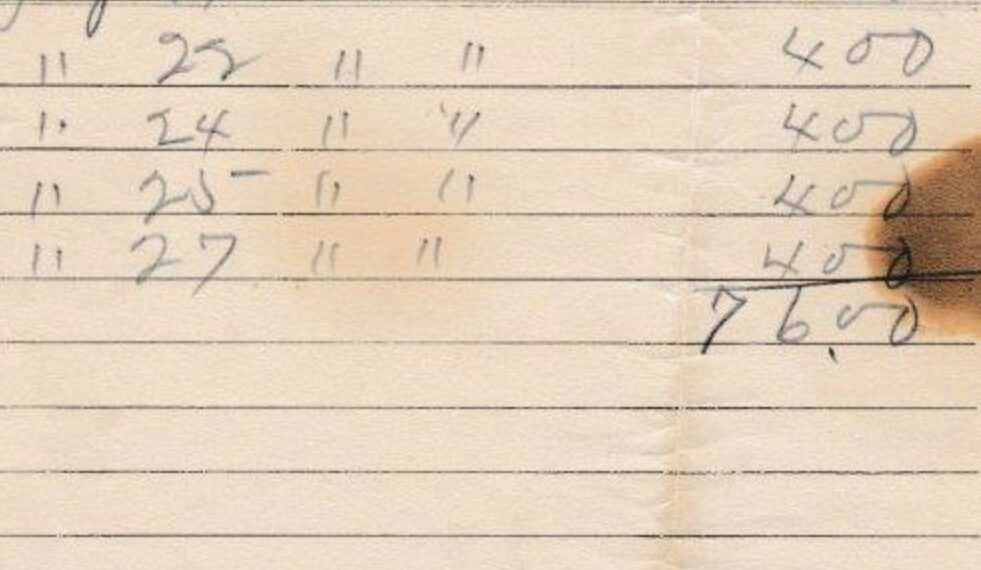 " 22 " " 400
" 24 " " 400
" 25 " " 400
" 27 " " 400
76.00